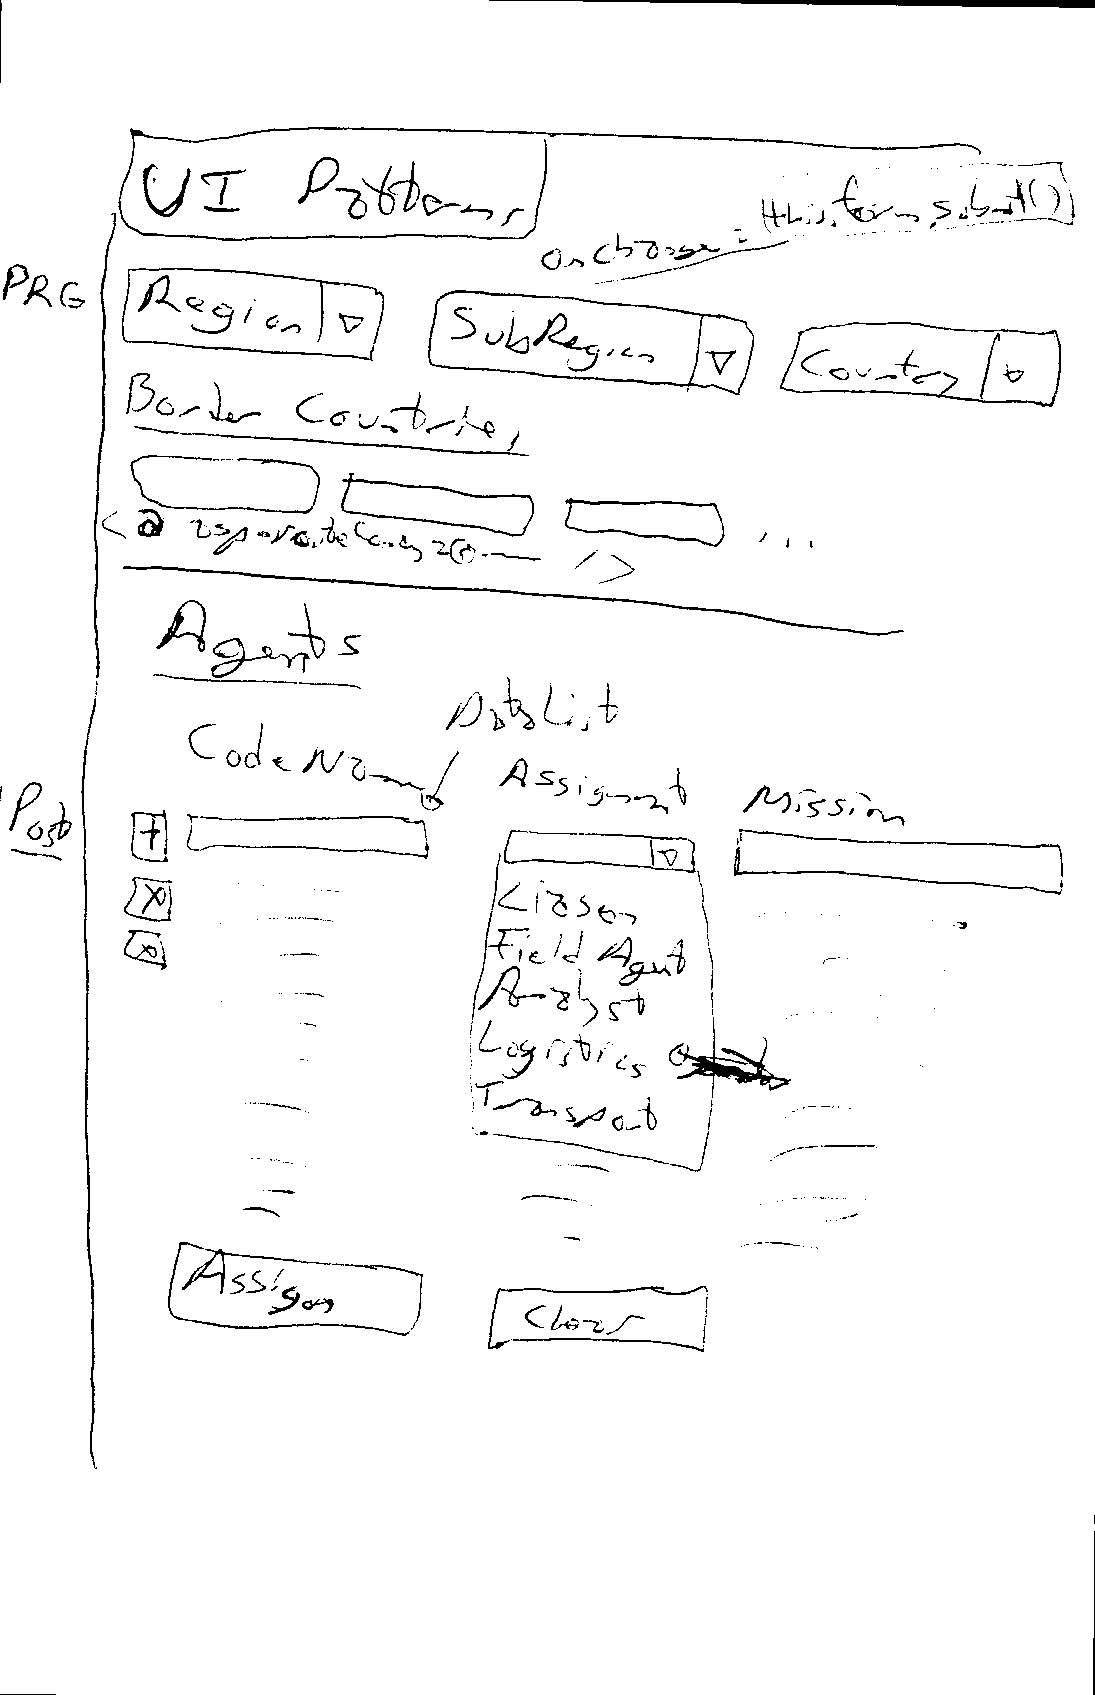 UI Patterns
onchange = this.form.submit()
PRG
Region
SubRegion
Country
Border Countries
...
< a asp-route- />
Agents
DataList
CodeName
Assignment
Mission
Post
+
x
x
Liason
Field Agent
Analyst
Logistics
Transport
Assign
Clear